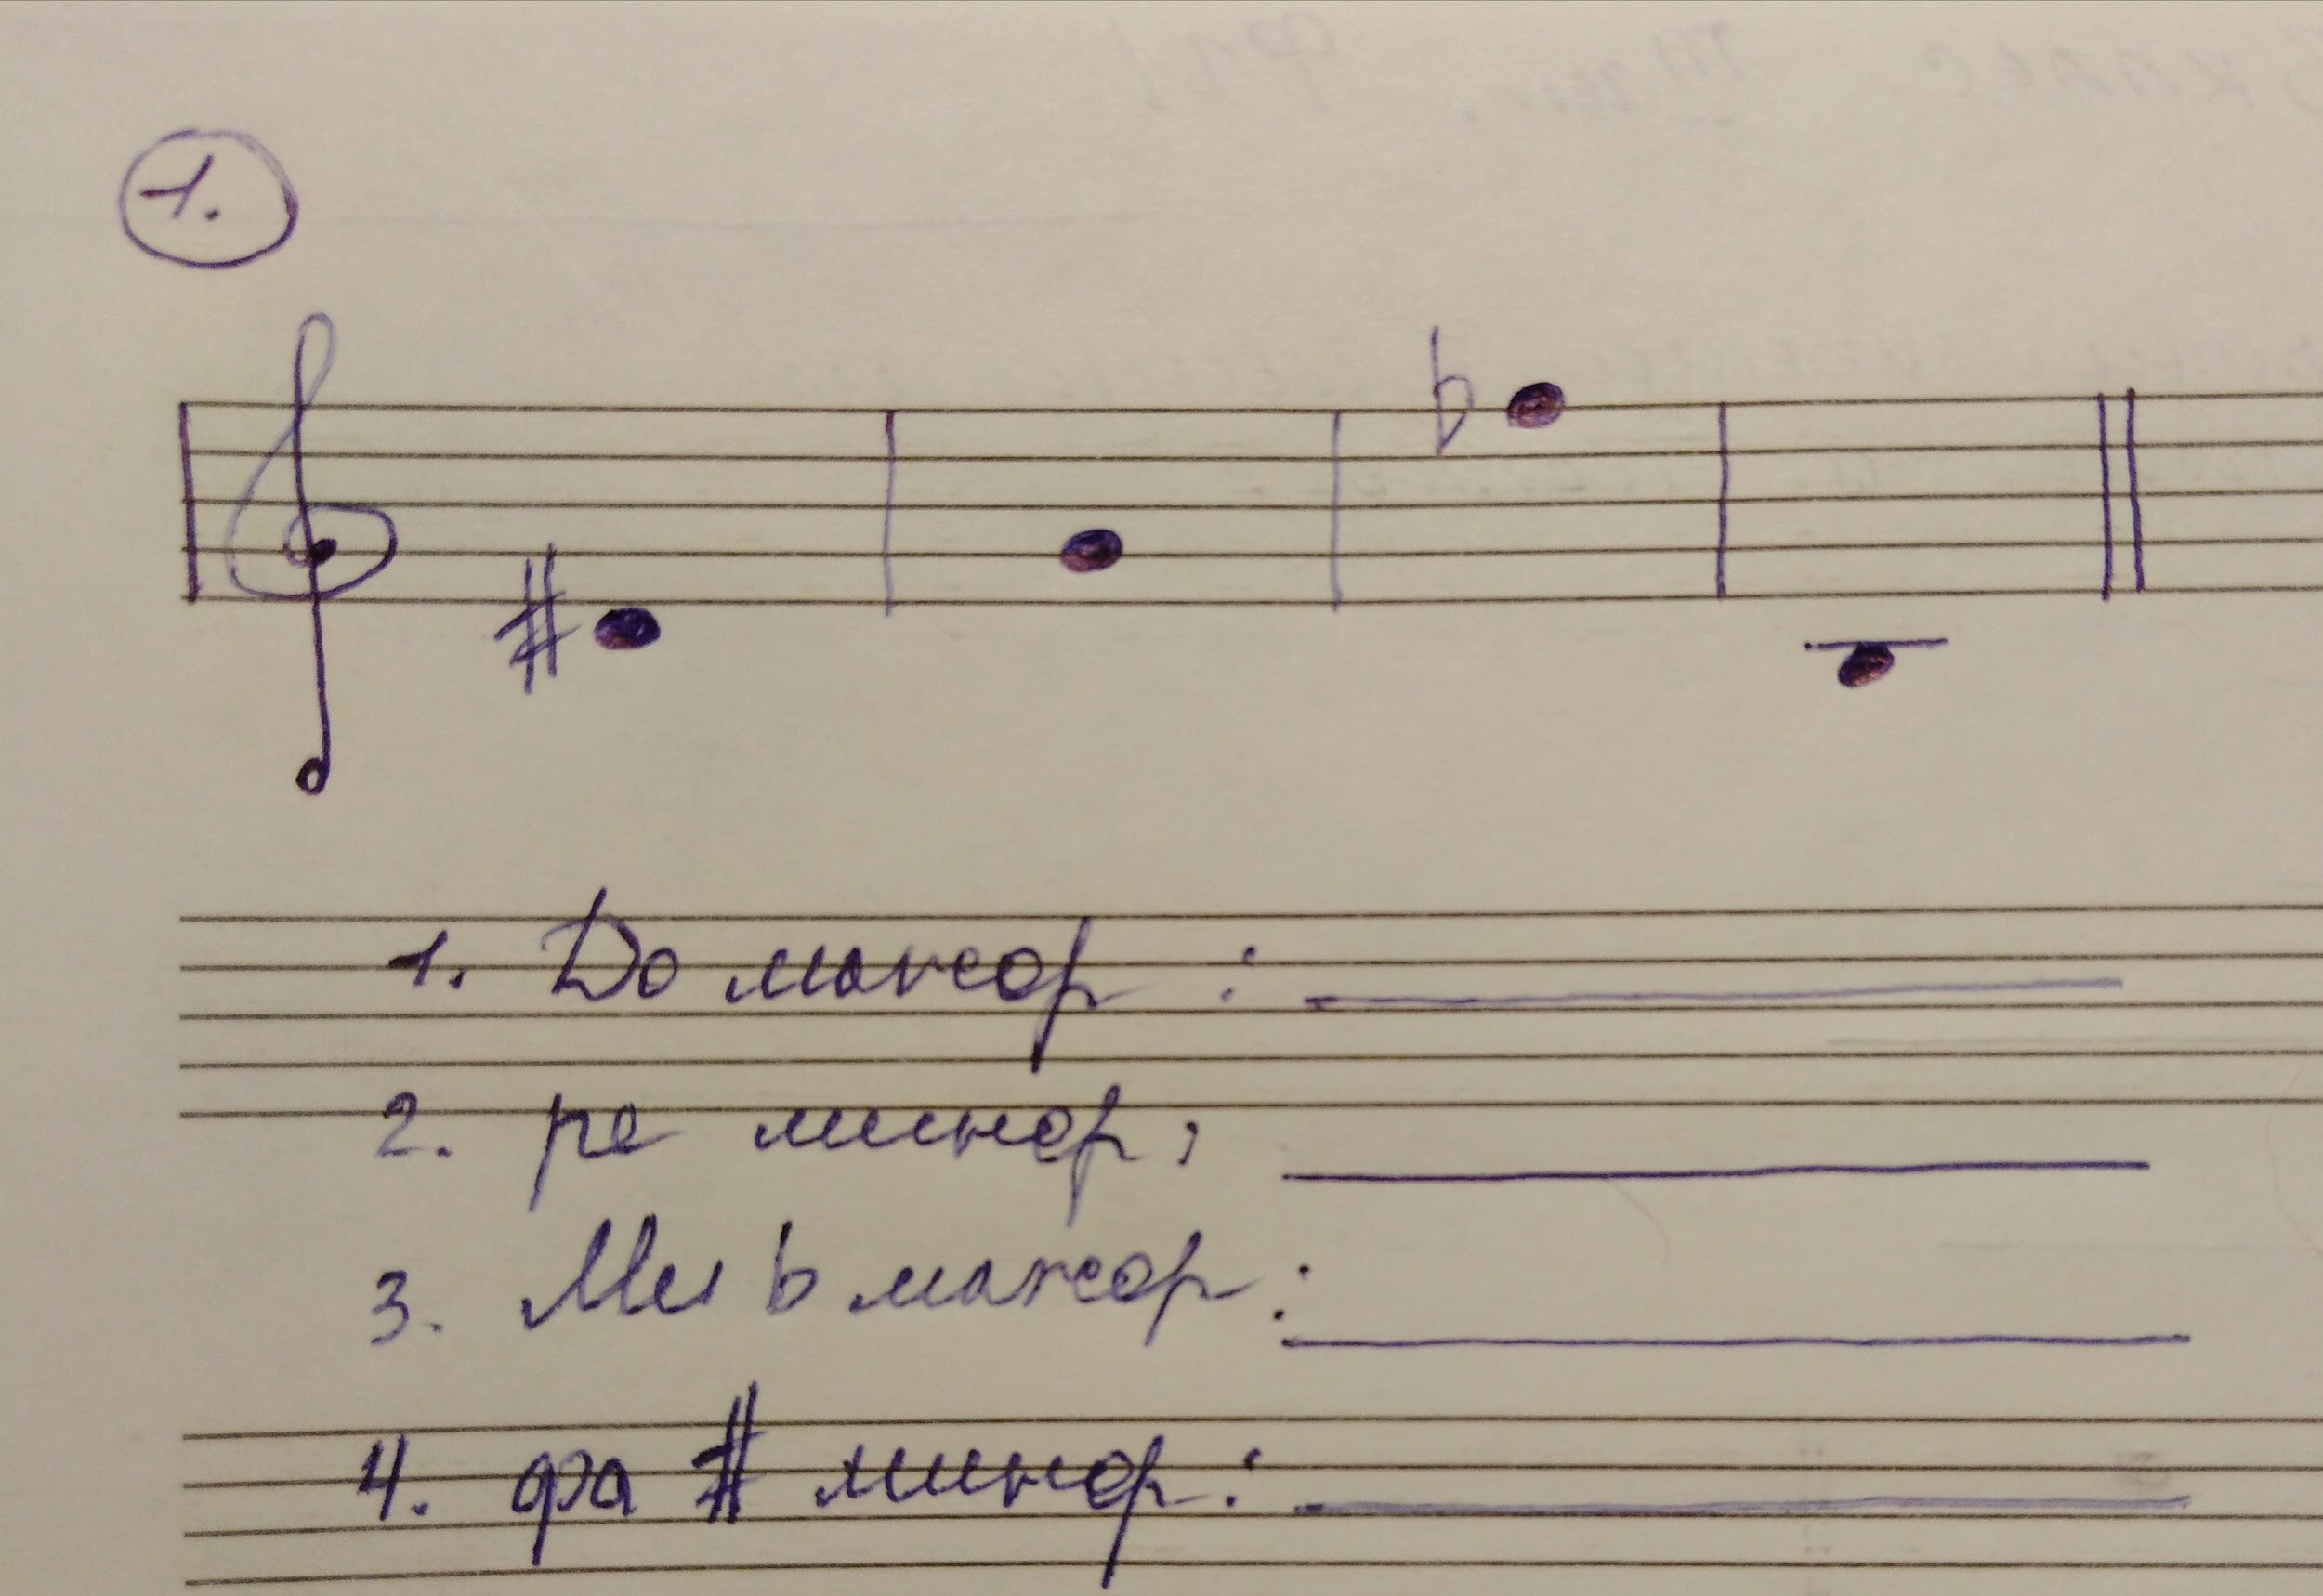 1.
1. До мажор :
2. ре минор :
3. Ми b мажор :
4. фа # минор :